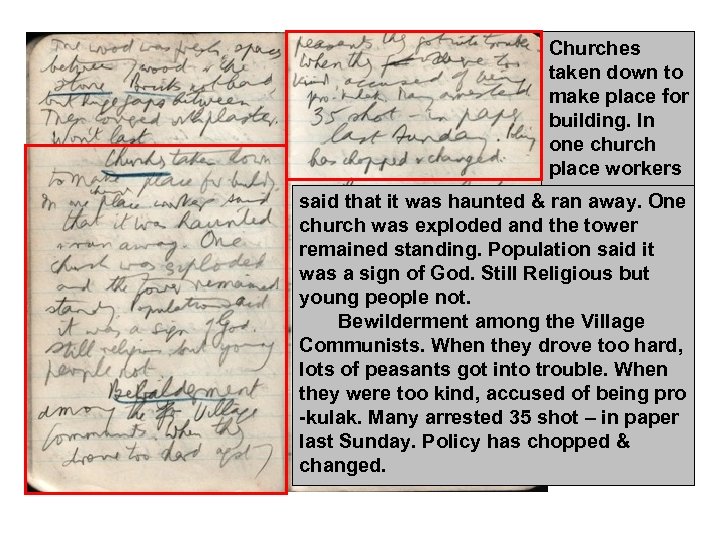 The wood was fresh, spaces
between wood & the
stone. Bricks not hard
but huge gaps between
Then covered with plaster.
Won't last.
Churches taken down
to make place for build.
In one church place workers said
that it was haunted
& ran away. One
church was exploded
and the tower remained
standg. Population said
it was a sign of God.
Still religious but young
people not.
Bewilderment
among the Village
Communists. When they
drove too hard
peasants they got into trouble.
When they were too
kind, accused of being
pro-kulak. Many arrested
35 shot – in paper
last Sunday. Policy
has chopped & changed.
Churches
taken down to
make place for
building. In
one church
place workers
said that it was haunted & ran away. One
church was exploded and the tower
remained standing. Population said it
was a sign of God. Still Religious but
young people not.
Bewilderment among the Village
Communists. When they drove too hard,
lots of peasants got into trouble. When
they were too kind, accused of being pro
-kulak. Many arrested 35 shot – in paper
last Sunday. Policy has chopped &
changed.